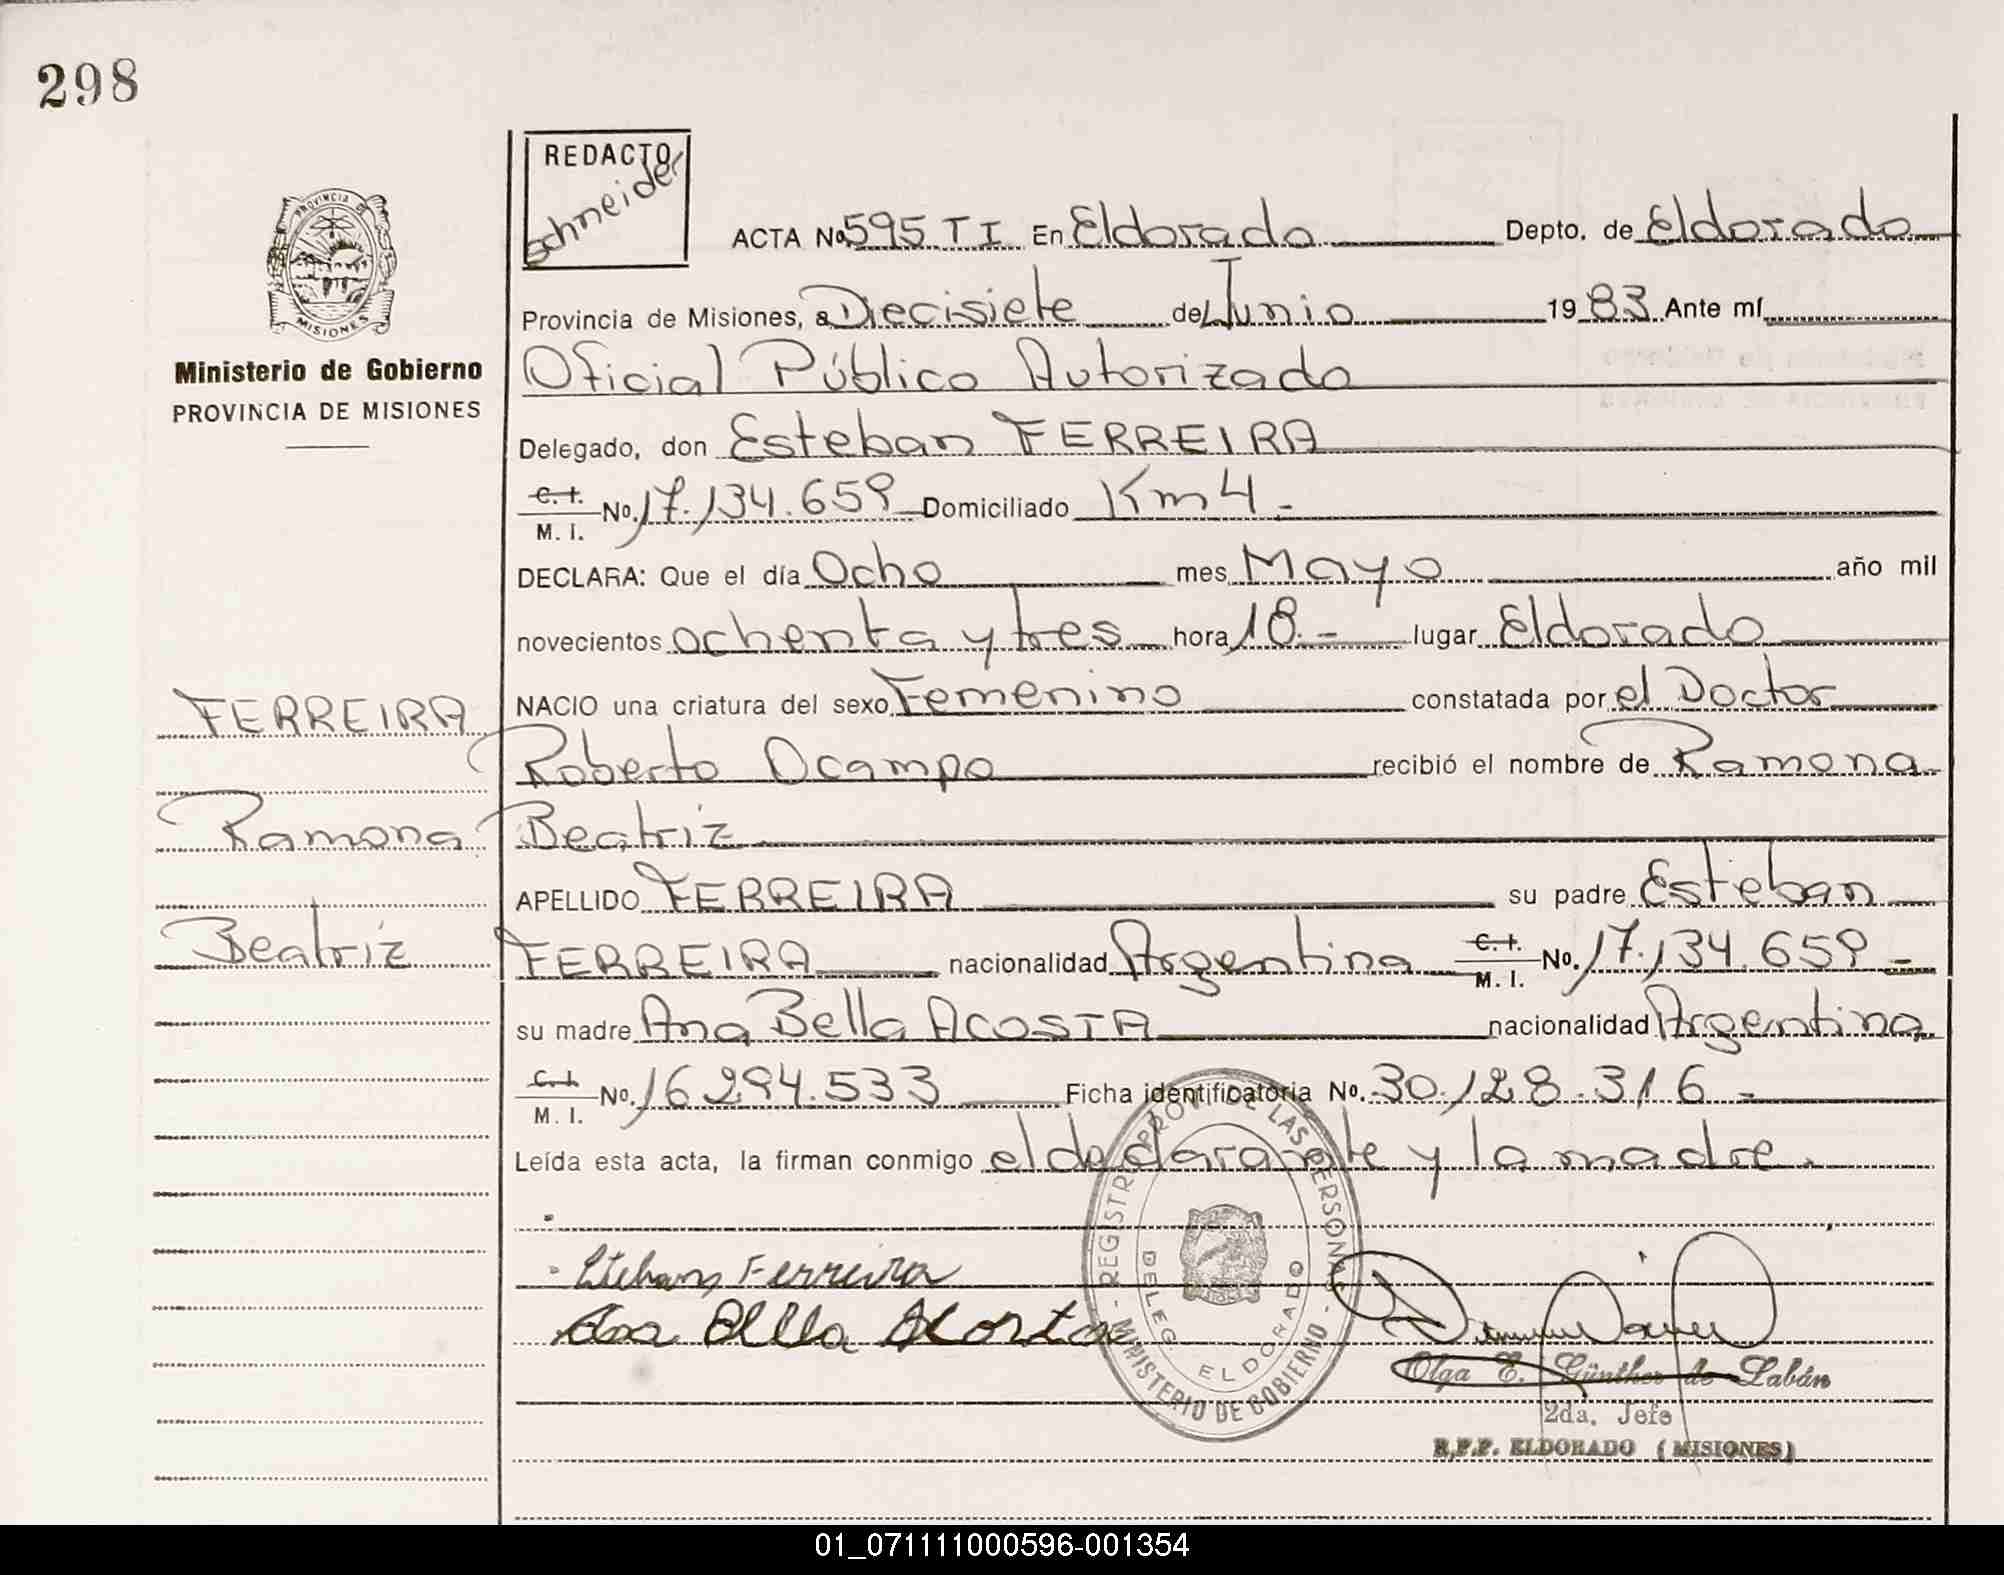 298
REDACTO
Schneider
PROVINCIA DE
MISIONES
Ministerio de Gobierno
PROVINCIA DE MISIONES
ACTA No. 595 T I En Eldorado Depto. de Eldorado
Provincia de Misiones, a Diecisiete de Junio 1983 Ante mí
Oficial Público Autorizado
Delegado, don Esteban FERREIRA
C. I. No. 17.134.659 Domiciliado Km 4 -
M. I.
DECLARA: Que el día Ocho mes Mayo año mil
novecientos ochenta y tres hora 18.- lugar Eldorado
NACIO una criatura del sexo Femenino constatada por el Doctor
Roberto Ocampo recibió el nombre de Ramona
Beatriz
APELLIDO FERREIRA su padre Esteban
FERREIRA nacionalidad Argentina C. I. No. 17.134.659 -
M. I.
su madre Ana Bella ACOSTA nacionalidad Argentina
C. I. No. 16.294.533 Ficha identificatoria No. 30.128.316 -
M. I.
Leída esta acta, la firman conmigo el declarante y la madre.
FERREIRA
Ramona
Beatriz
Esteban Ferreira
Ana Bella Acosta
REGISTRO PROV. DE LAS PERSONAS
DELEG. ELDORADO
MINISTERIO DE GOBIERNO
Olga E. Günther de Labán
2da. Jefe
R.P.P. ELDORADO (MISIONES)
01_071111000596-001354